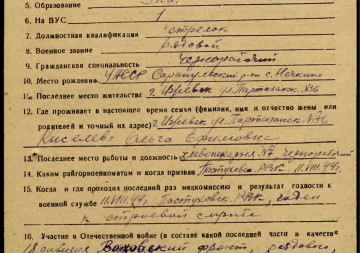 5. Образование 3 кл.
6. На ВУС 1
7. Должностная квалификация стрелок
8. Военное звание рядовой
9. Гражданская специальность Чернорабочий
10. Место рождения УАССР Сарапульский р-он с. Нечкино
11. Последнее место жительства г. Ижевск ул. Партизанск. №36
12. Где проживает в настоящее время семья (фамилия, имя и отчество жены или
родителей и точный их адрес) г. Ижевск ул. Партизанск №36
Киселева Ольга Ефимовна
13. Последнее место работы и должность хлебопекарня №7 чернорабочий
14. Каким райгорвоенкоматом и когда призван Пастухов. РВК 11.VIII.44г.
15. Когда и где проходил последний раз медкомиссию и результат годности к
военной службе 11.VIII.44г. Пастуховск. РВК, годен
к строевой службе
16. Участие в Отечественной войне (в составе какой последней части в качестве
18 дивизия Волховский фронт, рядового,